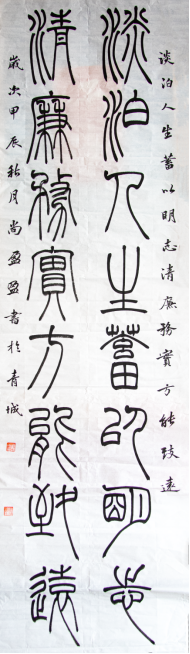 淡泊人生蓄以明志
清廉務實方能致遠
淡泊人生蓄以明志清廉務實方能致遠
歲次甲辰秋月尚盈盈書於青城